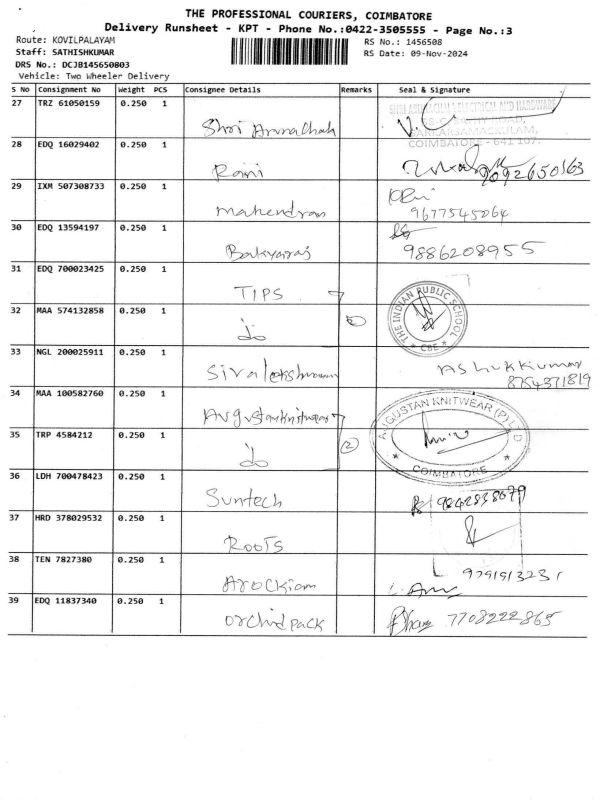 THE PROFESSIONAL COURIERS, COIMBATORE
Delivery Runsheet - KPT - Phone No.:0422-3505555 - Page No.:3
Route: KOVILPALAYAM RS No.: 1456508
Staff: SATHISHKUMAR RS Date: 09-Nov-2024
DRS No.: DCJB145650803
Vehicle: Two Wheeler Delivery
S No Consignment No Weight PCS Consignee Details Remarks Seal & Signature
27 TRZ 61050159 0.250 1
Shri Arunachala
COIMBATORE - 641 107.
28 EDQ 16029402 0.250 1
Rani
29 IXM 507308733 0.250 1
Mahendran 9677545064
30 EDQ 13594197 0.250 1
Bakyaraj 9886208955
31 EDQ 700023425 0.250 1
TIPS
THE INDIAN PUBLIC SCHOOL
* CBE *
32 MAA 574132858 0.250 1
do
33 NGL 200025911 0.250 1
Ashokkumar
8754371819
34 MAA 100582760 0.250 1
Augustanknitwear
AUGUSTAN KNITWEAR (P) LTD
COIMBATORE
35 TRP 4584212 0.250 1
do 2
36 LDH 700478423 0.250 1
Suntech 9842838679
37 HRD 378029532 0.250 1
Roots
38 TEN 7827380 0.250 1
Arockiam
39 EDQ 11837340 0.250 1
orchidpack 7708222865